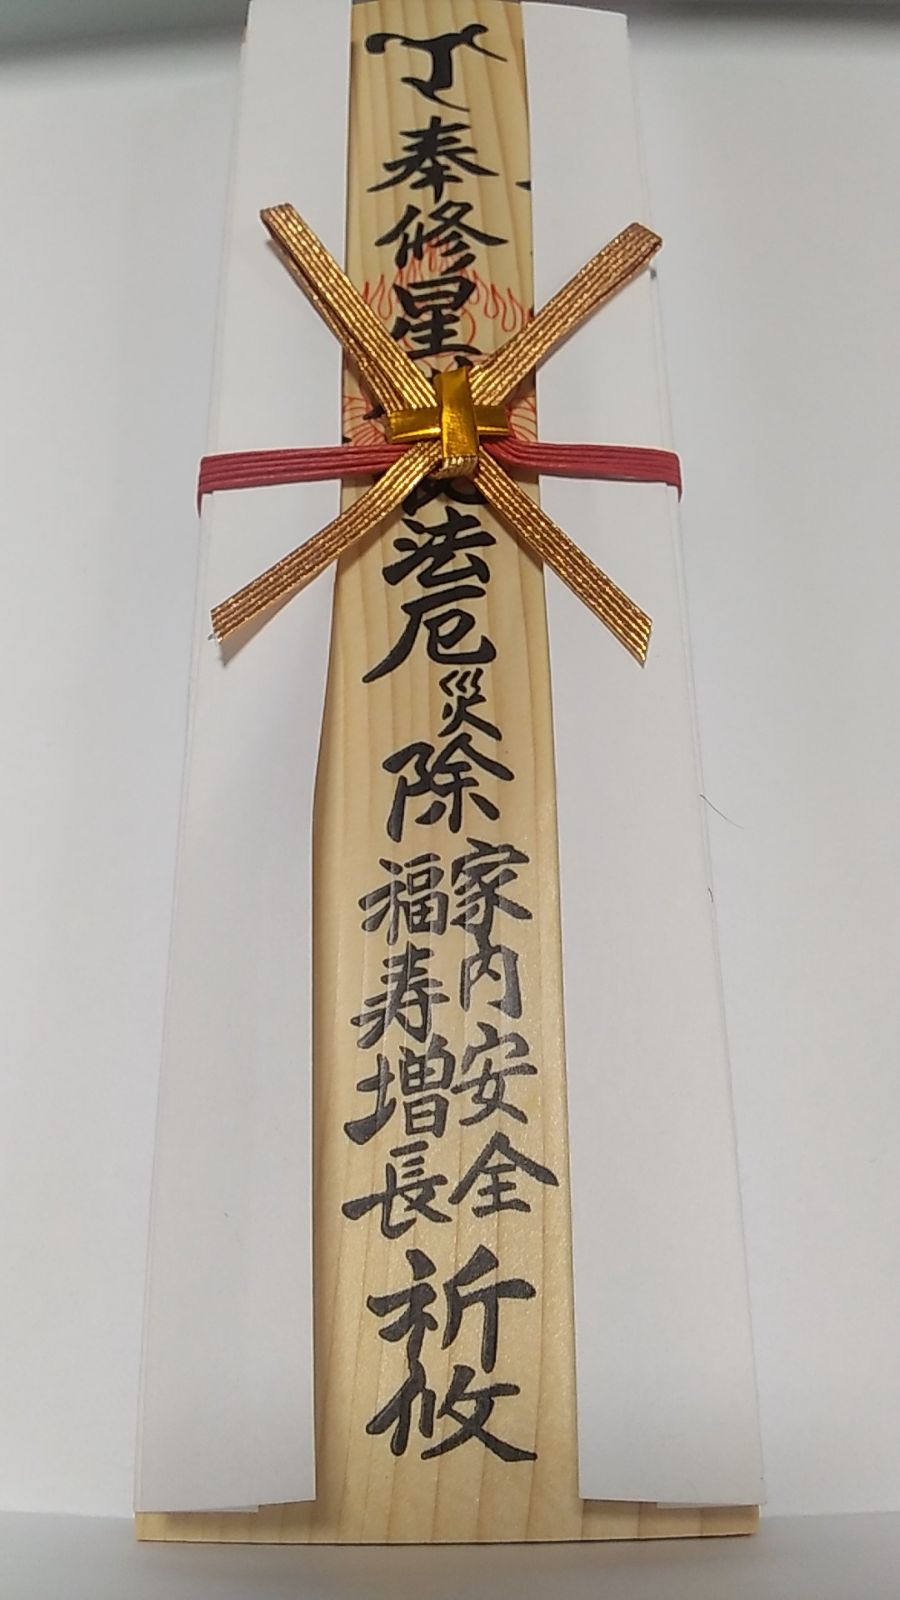 奉修星供
法厄災除
家内安全
福寿増長
祈攸